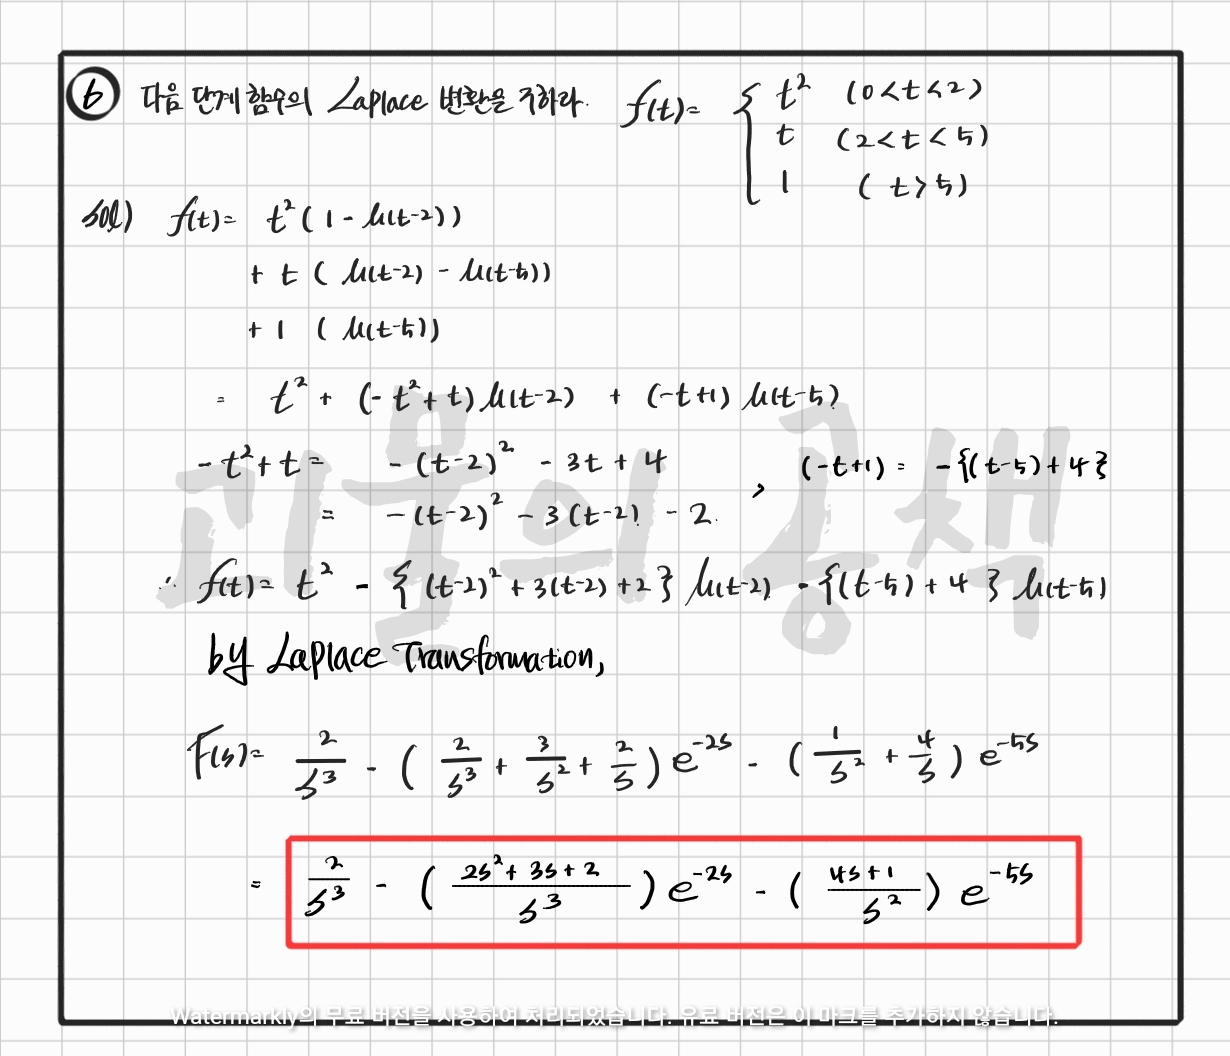 6 다음 단계 함수의 Laplace 변환을 구하라. f(t)= { t² (0<t<2)
t (2<t<5)
1 (t>5)
sol) f(t)= t²(1-u(t-2))
+ t (u(t-2) - u(t-5))
+ 1 (u(t-5))
= t² + (-t²+t)u(t-2) + (-t+1)u(t-5)
-t²+t = -(t-2)² - 3t + 4 , (-t+1) = -{(t-5)+4}
= -(t-2)² - 3(t-2) - 2.
∴ f(t)= t² - {(t-2)²+3(t-2)+2}u(t-2) - {(t-5)+4}u(t-5)
by Laplace Transformation,
F(s)= 2/s³ - (2/s³ + 3/s² + 2/s)e^{-2s} - (1/s² + 4/s)e^{-5s}
= 2/s³ - ((2s²+3s+2)/s³)e^{-2s} - ((4s+1)/s²)e^{-5s}
괴물의 공책
Watermarkly의 무료 버전을 사용하여 처리되었습니다. 유료 버전은 이 마크를 추가하지 않습니다.